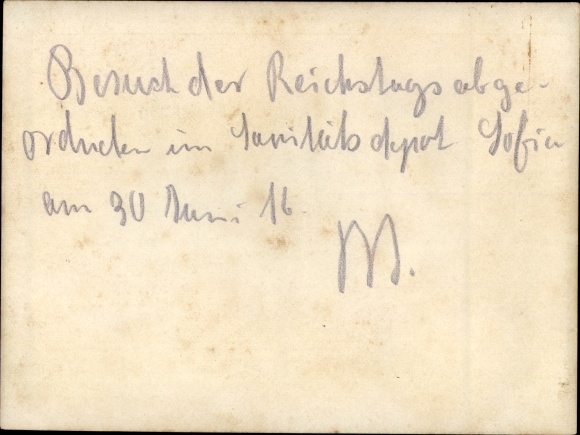 Besuch der Reichstagsabge-
ordneten im Sanitätsdepot Sofia
am 30 Juni 16
M.